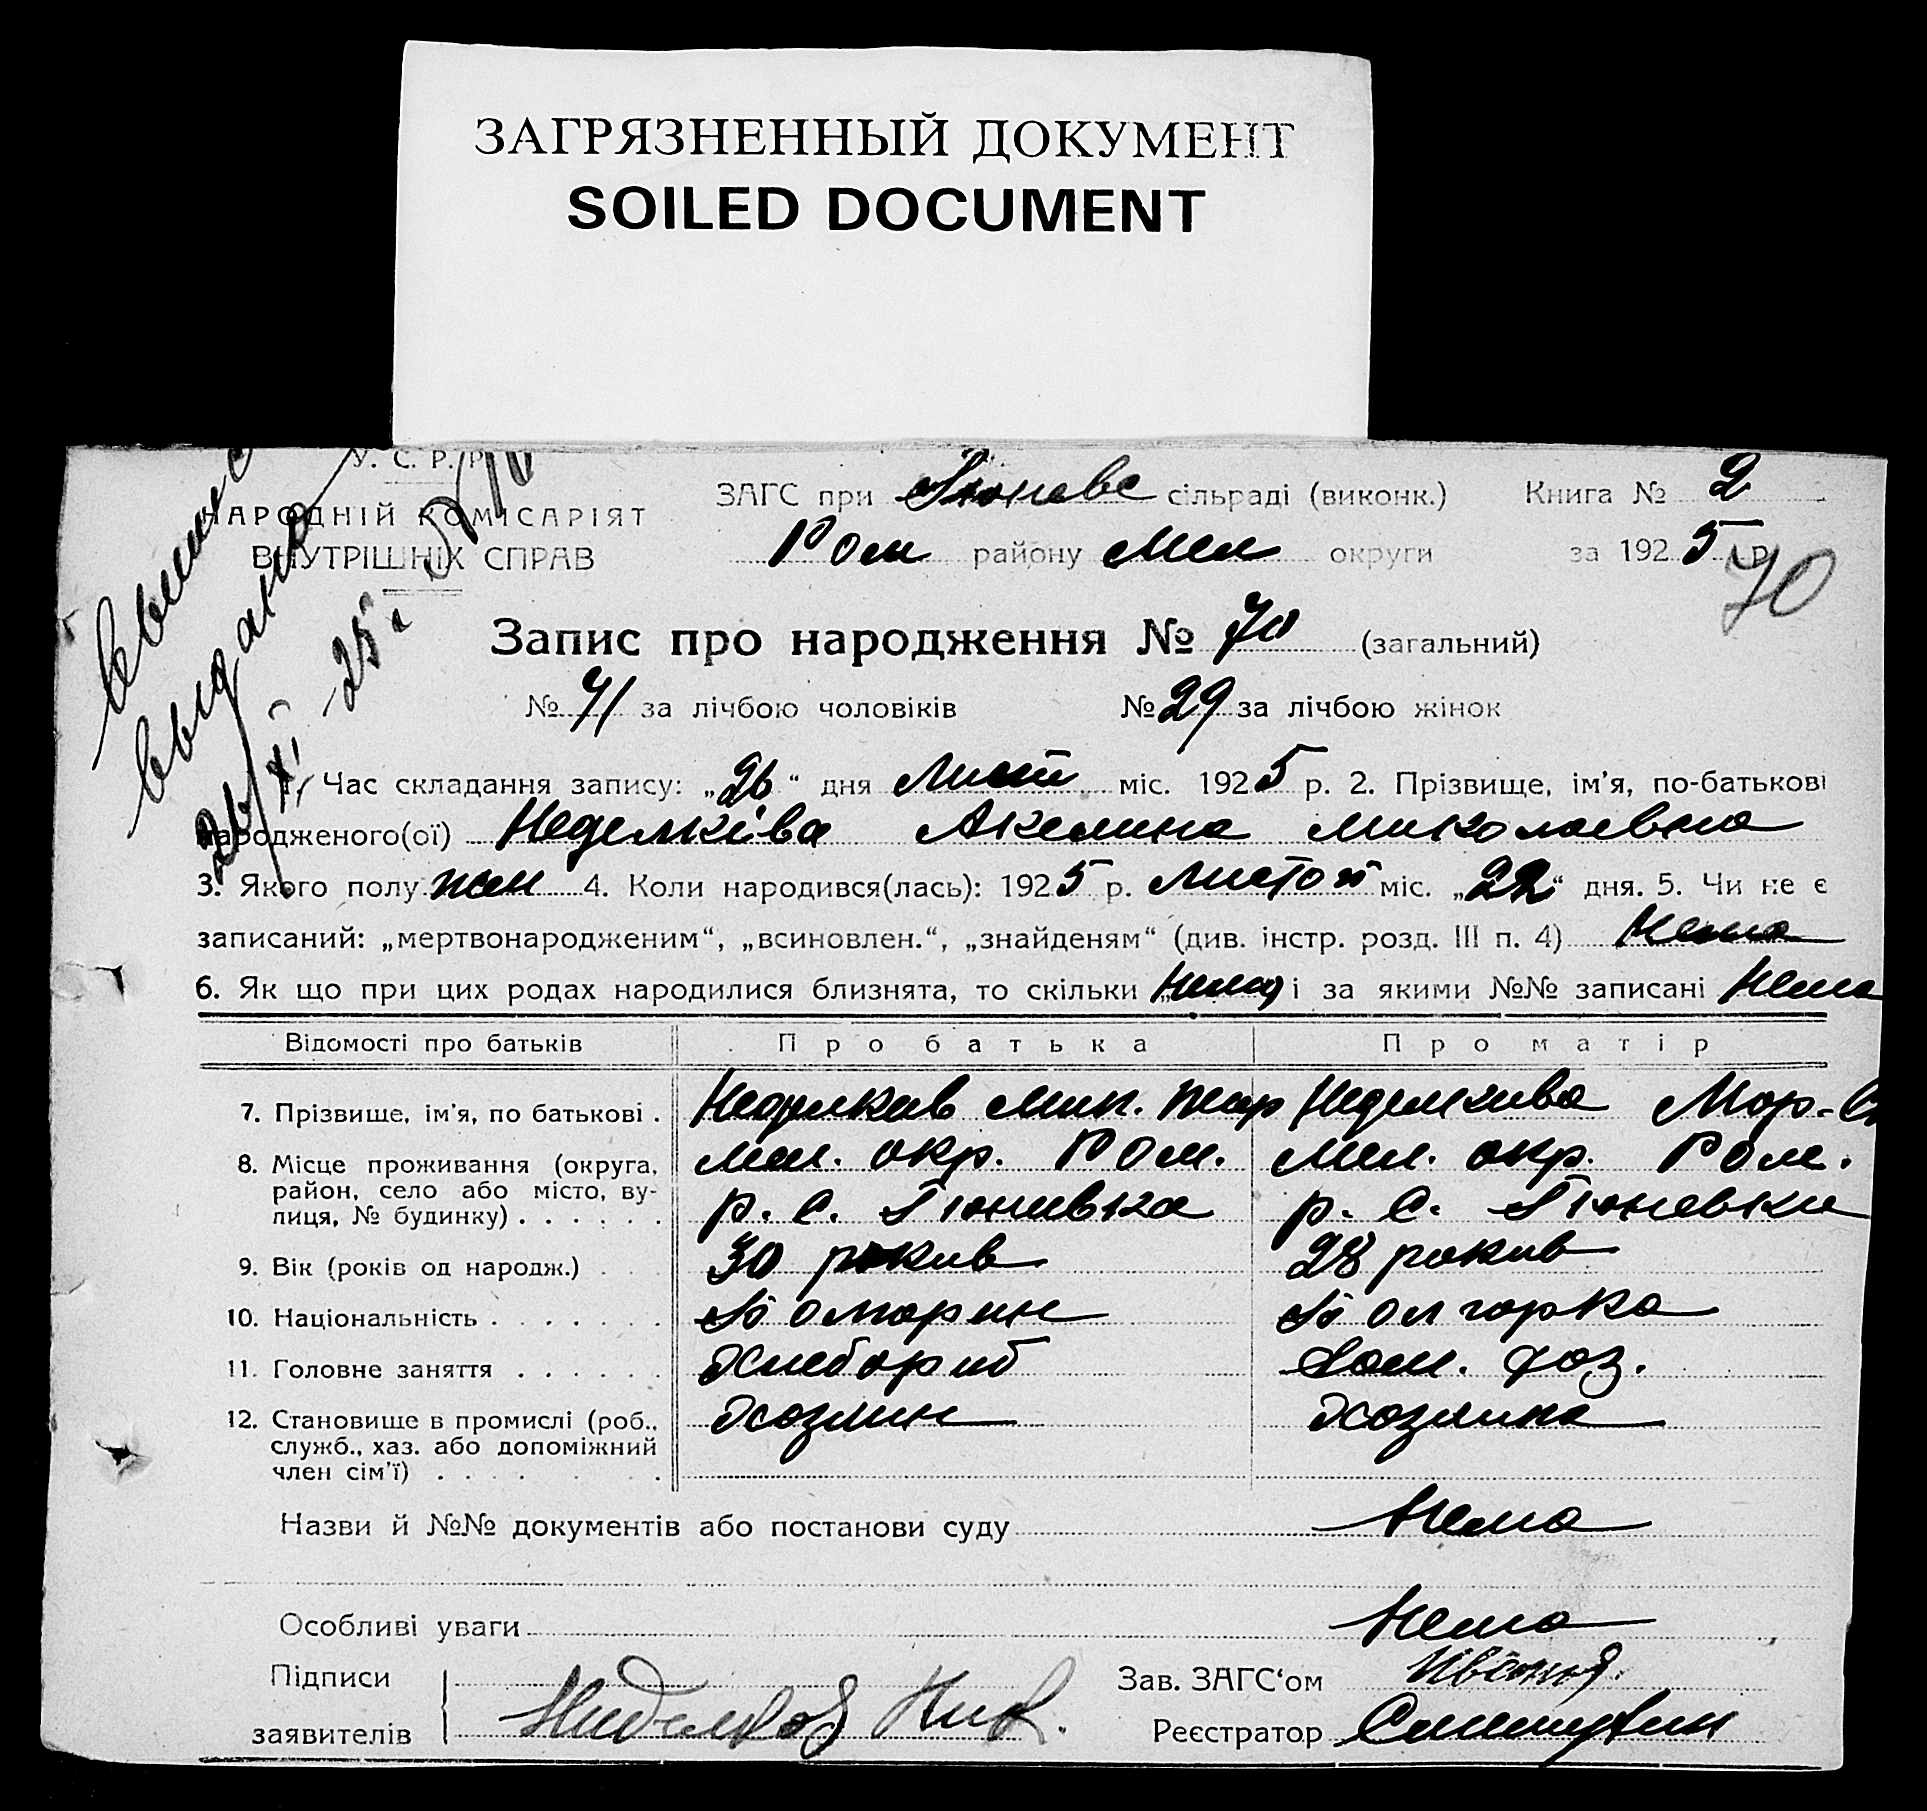 ЗАГРЯЗНЕННЫЙ ДОКУМЕНТ
SOILED DOCUMENT
У. С. Р. Р.
НАРОДНІЙ КОМІСАРІЯТ
ВНУТРІШНІХ СПРАВ
выпись
выдана
26/XI 25.
ЗАГС при сільраді (виконк.) Книга № 2
Ром району Мел округи за 1925 р.
70
Запис про народження № 70 (загальний)
№ 41 за лічбою чоловіків № 29 за лічбою жінок
1. Час складання запису: „26“ дня Лист міс. 1925 р. 2. Прізвище, ім’я, по-батькові
народженого(ої) Неделківа Акелина Миколаевна
3. Якого полу жен 4. Коли народився(лась): 1925 р. Листоп міс. „22“ дня. 5. Чи не є
записаний: „мертвонародженим“, „всиновлен.“, „знайденям“ (див. інстр. розд. III п. 4) Нема
6. Як що при цих родах народилися близнята, то скільки Нема і за якими №№ записані Нема
Відомості про батьків Про батька Про матір
7. Прізвище, ім’я, по батькові . Мик. Неделкива Мар.
8. Місце проживання (округа, район, село або місто, вулиця, № будинку) . . . . . . Мел. окр. Ром. Мел. окр. Ром.
р. с. р. с.
9. Вік (років од народж.) . . 30 рокив 28 рокив
10. Національність . . . . . . . Болгарин Болгарка
11. Головне заняття . . . . . . Хлебориб Дом. хоз.
12. Становище в промислі (роб., служб., хаз. або допоміжний член сім’ї) . . . . . . Хозяин Хозяика
Назви й №№ документів або постанови суду Нема
Особливі уваги Нема
Підписи Зав. ЗАГС‘ом
заявителів Ник. Реєстратор